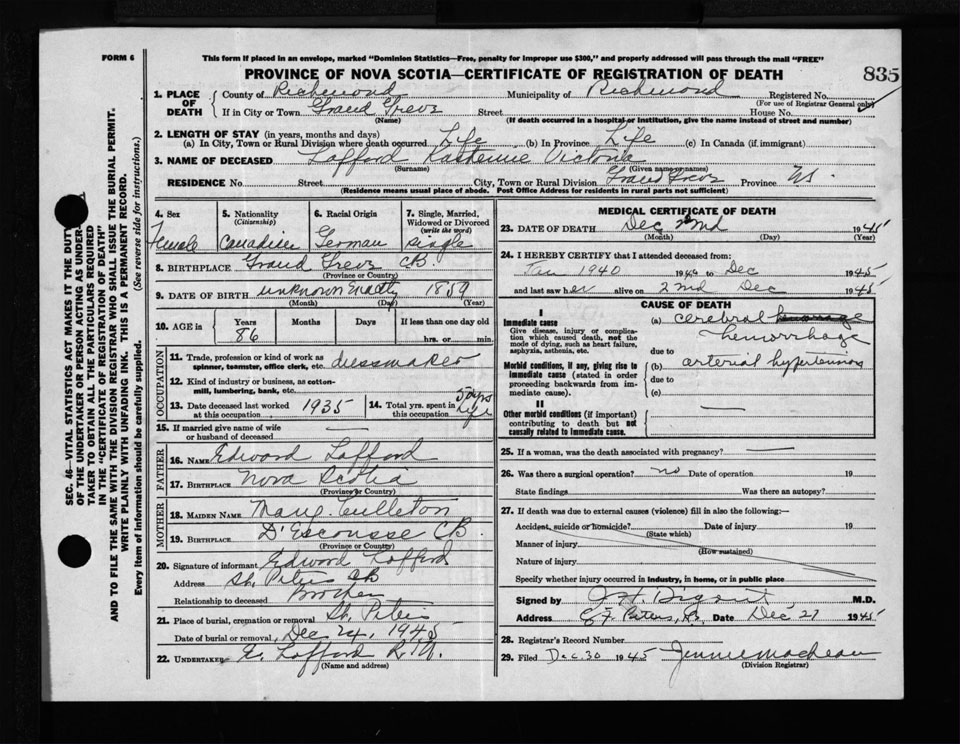 FORM 6
This form if placed in an envelope, marked "Dominion Statistics—Free, penalty for improper use $300," and properly addressed will pass through the mail "FREE"
PROVINCE OF NOVA SCOTIA—CERTIFICATE OF REGISTRATION OF DEATH
835
1. PLACE OF DEATH
County of Richmond Municipality of Richmond Registered No.
(For use of Registrar General only)
If in City or Town Grand Greve Street House No.
(Name) (If death occurred in a hospital or institution, give the name instead of street and number)
2. LENGTH OF STAY (in years, months and days)
(a) In City, Town or Rural Division where death occurred Life (b) In Province Life (c) In Canada (if immigrant)
3. NAME OF DECEASED Lafford Katherine Victoria
(Surname) (Given name or names)
RESIDENCE No. Street City, Town or Rural Division Grand Greve Province NS.
(Residence means usual place of abode. Post Office Address for residents in rural parts not sufficient)
4. Sex
Female
5. Nationality
(Citizenship)
Canadian
6. Racial Origin
German
7. Single, Married, Widowed or Divorced
(write the word)
single
8. BIRTHPLACE Grand Greve CB.
(Province or Country)
9. DATE OF BIRTH unknown Exactly 1859
(Month) (Day) (Year)
10. AGE in
Years 86
Months
Days
If less than one day old
hrs. or min.
OCCUPATION
11. Trade, profession or kind of work as spinner, teamster, office clerk, etc. dressmaker
12. Kind of industry or business, as cotton-mill, lumbering, bank, etc.
13. Date deceased last worked at this occupation 1935
14. Total yrs. spent in this occupation
15. If married give name of wife or husband of deceased —
FATHER
16. NAME Edward Lafford
17. BIRTHPLACE Nova Scotia
(Province or Country)
MOTHER
18. MAIDEN NAME Mary Culleton
19. BIRTHPLACE D'Escousse CB.
(Province or Country)
20. Signature of informant Edward Lafford
Address St. Peters CB
Relationship to deceased Brother
21. Place of burial, cremation or removal St. Peters
Date of burial or removal, Dec 24, 1945
22. UNDERTAKER E. Lafford
(Name and address)
MEDICAL CERTIFICATE OF DEATH
23. DATE OF DEATH Dec 22nd 1945
(Month) (Day) (Year)
24. I HEREBY CERTIFY that I attended deceased from:
Jan 1940 to Dec 1945
and last saw her alive on 2nd Dec 1945
CAUSE OF DEATH
I
Immediate cause
Give disease, injury or complication which caused death, not the mode of dying, such as heart failure, asphyxia, asthenia, etc.
(a) cerebral
hemorrhage
due to
Morbid conditions, if any, giving rise to immediate cause (stated in order proceeding backwards from immediate cause).
(b) arterial hypertension
due to
(c)
II
Other morbid conditions (if important) contributing to death but not causally related to immediate cause.
—
25. If a woman, was the death associated with pregnancy? —
26. Was there a surgical operation? no Date of operation 19
State findings Was there an autopsy?
27. If death was due to external causes (violence) fill in also the following:—
Accident, suicide or homicide? Date of injury 19
(State which)
Manner of injury
(How sustained)
Nature of injury
Specify whether injury occurred in industry, in home, or in public place
Signed by M.D.
Address St. Peters, Date Dec 27 1945
28. Registrar's Record Number
29. Filed Dec. 30 1945 Jennie MacLean
(Division Registrar)
SEC. 46—VITAL STATISTICS ACT MAKES IT THE DUTY OF THE UNDERTAKER OR PERSON ACTING AS UNDERTAKER TO OBTAIN ALL THE PARTICULARS REQUIRED IN THE "CERTIFICATE OF REGISTRATION OF DEATH" AND TO FILE THE SAME WITH THE DIVISION REGISTRAR WHO SHALL ISSUE THE BURIAL PERMIT.
WRITE PLAINLY WITH UNFADING INK. THIS IS A PERMANENT RECORD.
Every item of information should be carefully supplied. (See reverse side for instructions.)